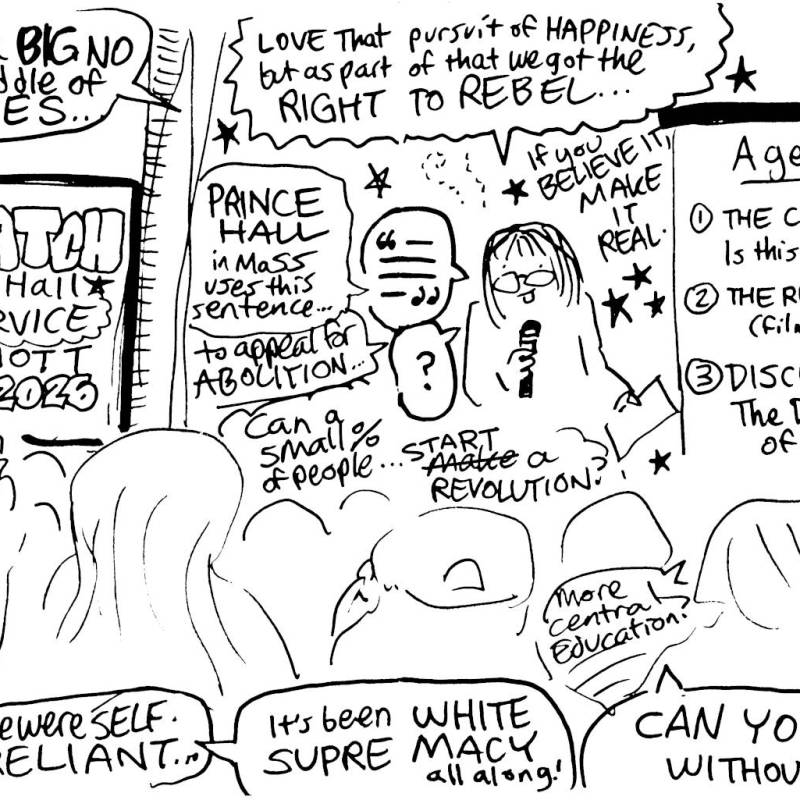 BIG NO
ddle of
ES...
LOVE THAT pursuit of HAPPINESS,
but as part of that we got the
RIGHT TO REBEL...
If you
BELIEVE IT,
MAKE
IT
REAL.
PRINCE
HALL
in MASS
uses this
sentence...
to appeal for
ABOLITION...
?
Can a
small %
of people... START
Make a
REVOLUTION?
ATCH
Hall
RVICE
OTT
2026
Age
① THE C
Is this
② THE R
(film
③ DISC
The D
of
More
central
Education?
ewere SELF.
RELIANT...
It's been WHITE
SUPRE MACY
all along!
CAN YO
WITHOU